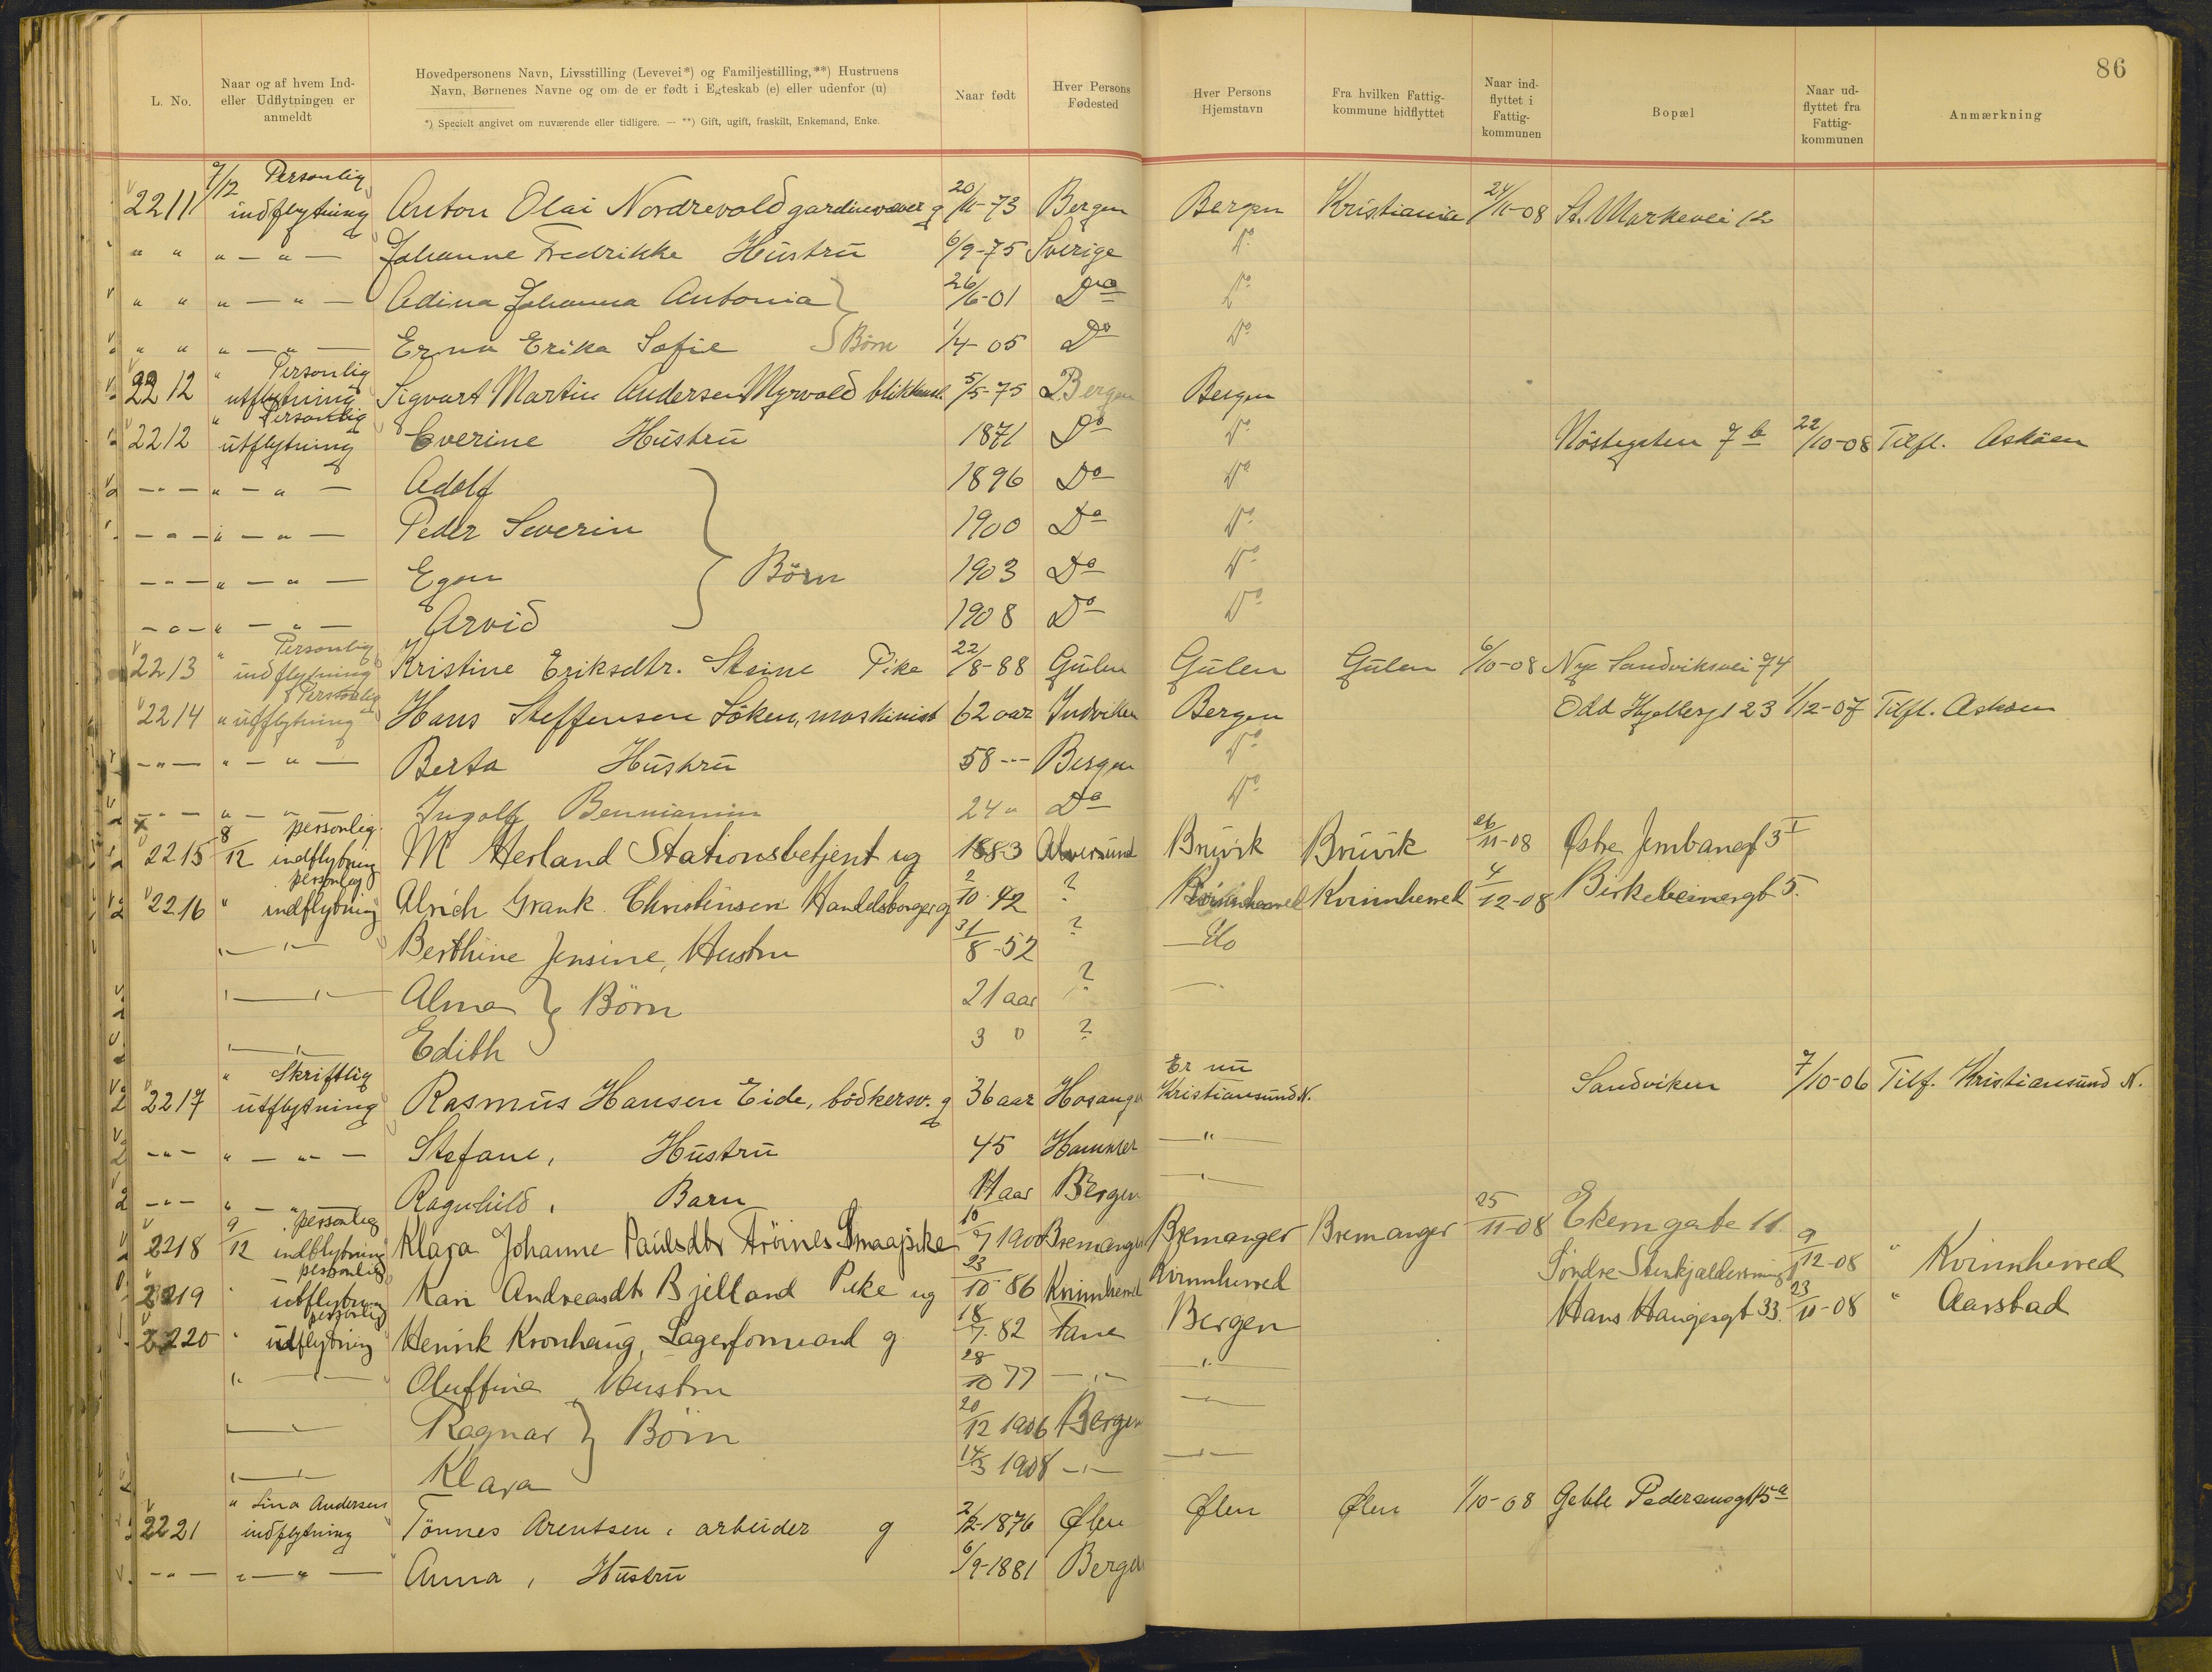 86
L. No.
Naar og af hvem Ind-
eller Udflytningen er
anmeldt
Høvedpersonens Navn, Livsstilling (Levevei*) og Familjestilling,**) Hustruens
Navn, Børnenes Navne og om de er født i Egteskab (e) eller udenfor (u)
*) Specielt angivet om nuværende eller tidligere. — **) Gift, ugift, fraskilt, Enkemand, Enke.
Naar født
Hver Persons
Fødested
Hver Persons
Hjemstavn
Fra hvilken Fattig-
kommune hidflyttet
Naar ind-
flyttet i
Fattig-
kommunen
Bopæl
Naar ud-
flyttet fra
Fattig-
kommunen
Anmærkning
7/12 Personlig
2211 indflytning Anton Olai Nordrevold gardinevæver g 20/11-73 Bergen Bergen Kristiania 24/11-08 St. Markevei 12
" " " — " — Johanne Fredrikke Hustru 6/9-75 Sverige Do
" " " — " — Adina Johanna Antonia 26/6-01 Do Do
" " " — " — Erna Erika Sofie } Børn 1/4-05 Do Do
" Personlig
2212 utflytning Sigvart Martin Andersen Myrvold blikkensl. 5/5-75 Bergen Bergen
" Personlig
2212 utflytning Everine Hustru 1871 Do Do Nöstegaten 7 b 22/10-08 Tilfl. Asköen
— " — " — " — Adolf 1896 Do Do
— " — " — " — Peder Severin 1900 Do Do
— " — " — " — Egon } Börn 1903 Do Do
— " — " — " — Arvid 1908 Do Do
" Personlig
2213 indflytning Kristine Eriksdtr. Steine Pike 22/8-88 Gulen Gulen Gulen 6/10-08 Nye Sandviksvei 74
Personlig
2214 " utflytning Hans Steffensen Söken, maskinist 62 aar Indviken Bergen Odd Hjeltersgt 23 1/12-07 Tilfl. Asköen
— " — " — " — Berta Hustru 58 — Bergen Do
— " — " — " — Ingolf Benniamin 24 " Do Do
8 personlig
2215 12 indflytning M Herland Stationsbetjent ug 1883 Alversund Bruvik Bruvik 26/11-08 Østre Jernbanegt 3 I
personlig
2216 " indflytning Alrich Grank Christensen Handelsborger g 2/10-42 ? Kvinnherred Kvinnherred 4/12-08 Birkebeinergt 5.
— " — Berthine Jensine, Hustru 31/8-52 ? — Do
— " — Alma } Börn 21 aar ? —
— " — Edith 3 " ?
" Skriftlig Er nu
2217 utflytning Rasmus Hansen Eide, bödkersv. g 36 aar Hosanger Kristiansund N. Sandviken 7/10-06 Tilf. Kristiansund N.
— " — " — " — Stefane, Hustru 45 Hammer — " —
— " — " — " — Ragnhild, Barn 11 aar Bergen — " —
9 personlig
2218 12 indflytning Klara Johanne Paulsdtr Fröines Smaapike 10/7 1900 Bremanger Bremanger Bremanger 25/11-08 Ekerngate 11.
personlig
2219 " utflytning Kari Andreasdtr Bjelland Pike ug 23/10-86 Kvinnherred Kvinnherred Söndre Stenkjelderssmug 9/12-08 " Kvinnherred
personlig
2220 " utflytning Henrik Kronhaug, Lagerformand g 18/7-82 Fane Bergen Hans Haugesgt 33. 23/11-08 " Aarstad
" — " — Oluffine, Hustru 28/10 77 — " — — " —
— " — Ragnar } Börn 20/12 1906 Bergen — " —
— " — Klara 14/3 1908 — " — — " —
" Lina Andersen
2221 indflytning Tönnes Arentsen, arbeider g 2/2-1876 Ølen Ølen Ølen 1/10-08 Geble Pedersensgt 15 a
— " — " — " — Anna, Hustru 6/9-1881 Bergen